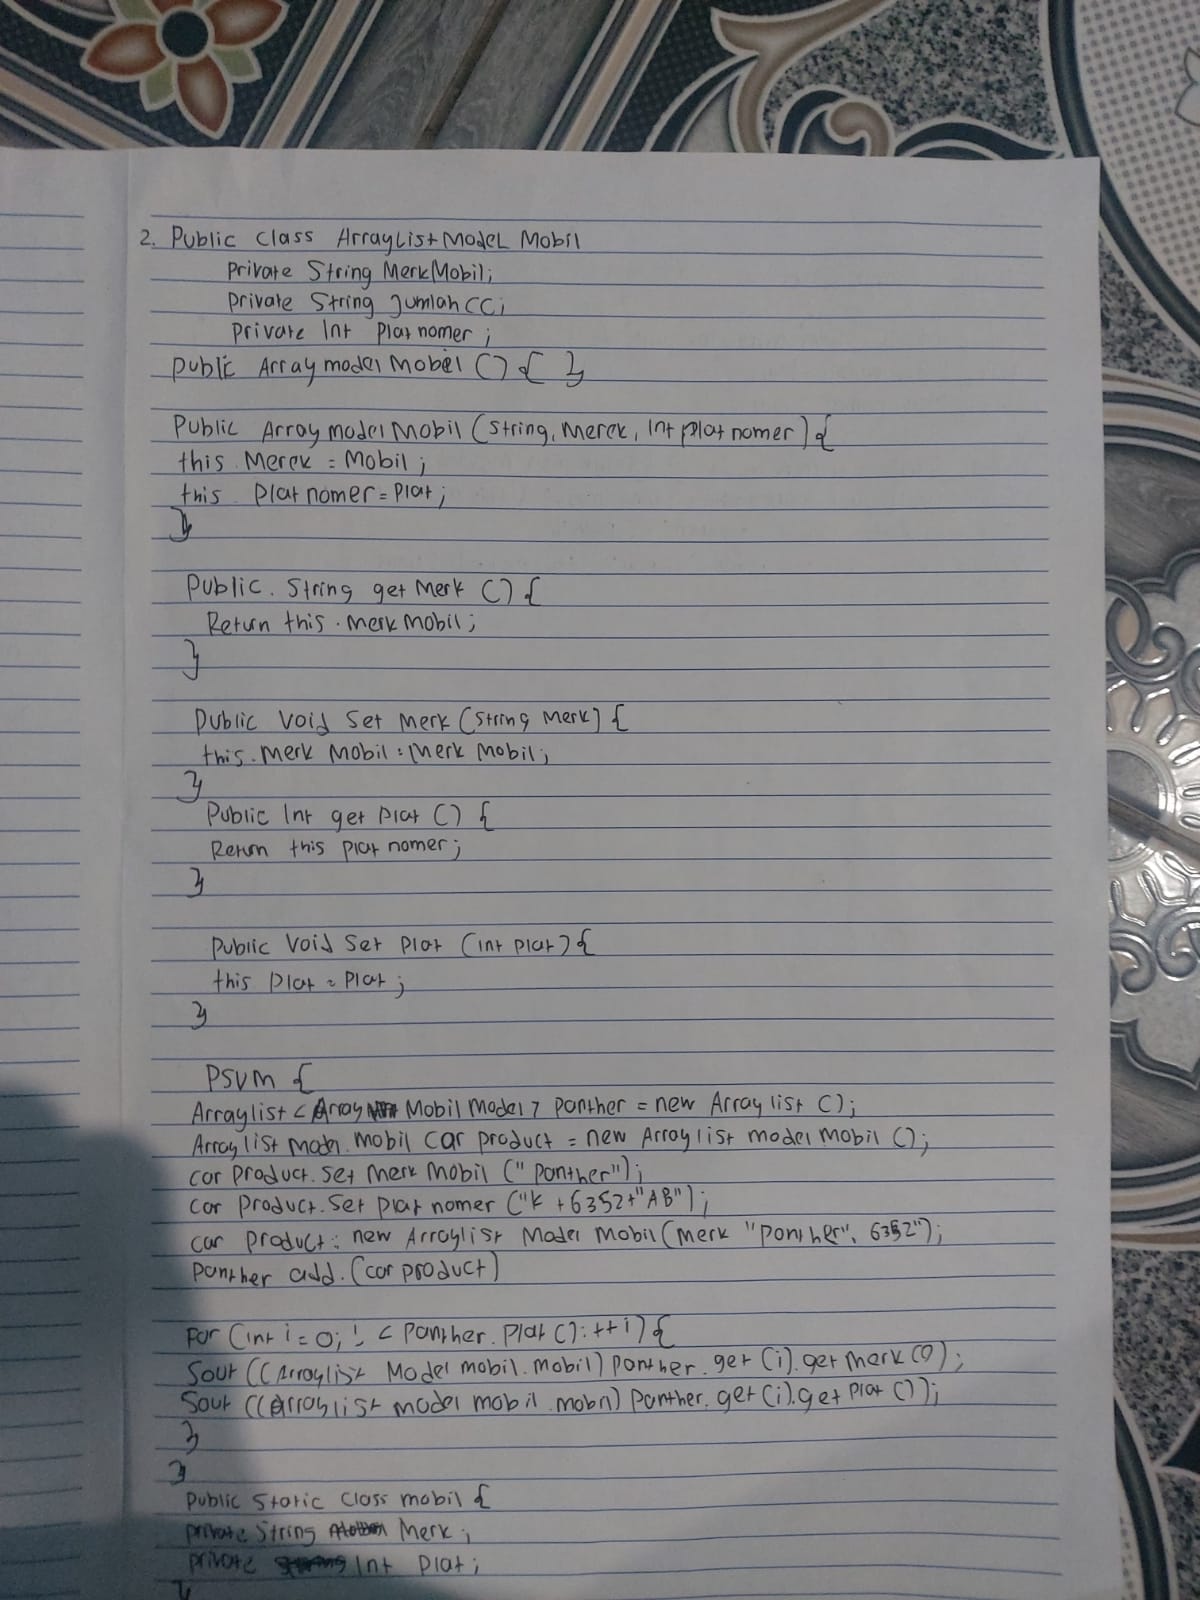 2. Public Class ArrayListModel Mobil
Private String MerkMobil;
Private String JumlahCC;
Private Int Plat nomer;
Public Array model Mobel () { }
Public Array model Mobil (String, Merek, Int plat nomer) {
this. Merek = Mobil;
this. Plat nomer = Plat;
}
Public. String get Merk () {
Return this. merk Mobil;
}
Public Void Set Merk (String Merk) {
this. Merk Mobil = Merk Mobil;
}
Public Int get Plat () {
Return this plat nomer;
}
Public Void Set Plat (int plat) {
this Plat = Plat;
}
PSVM {
Arraylist < Array Mobil Model > Panther = new Array list ();
Array list mobil Car product = new Array list model Mobil ();
car product. set Merk Mobil ("Panther");
car product. Set plat nomer ("K + 6352 + "AB");
car product = new Array list Model Mobil (Merk "Panther", 6352");
Panther add. (car product)
For (int i = 0; ! < Panther. Plat (): ++i) {
Sout ((Arraylist Model mobil. mobil) Panther. get (i). get Merk ());
Sout ((Array list model mobil. mobil) Panther. get (i). get Plat ());
}
}
Public Static Class mobil {
private String Merk;
private Int Plat;
}